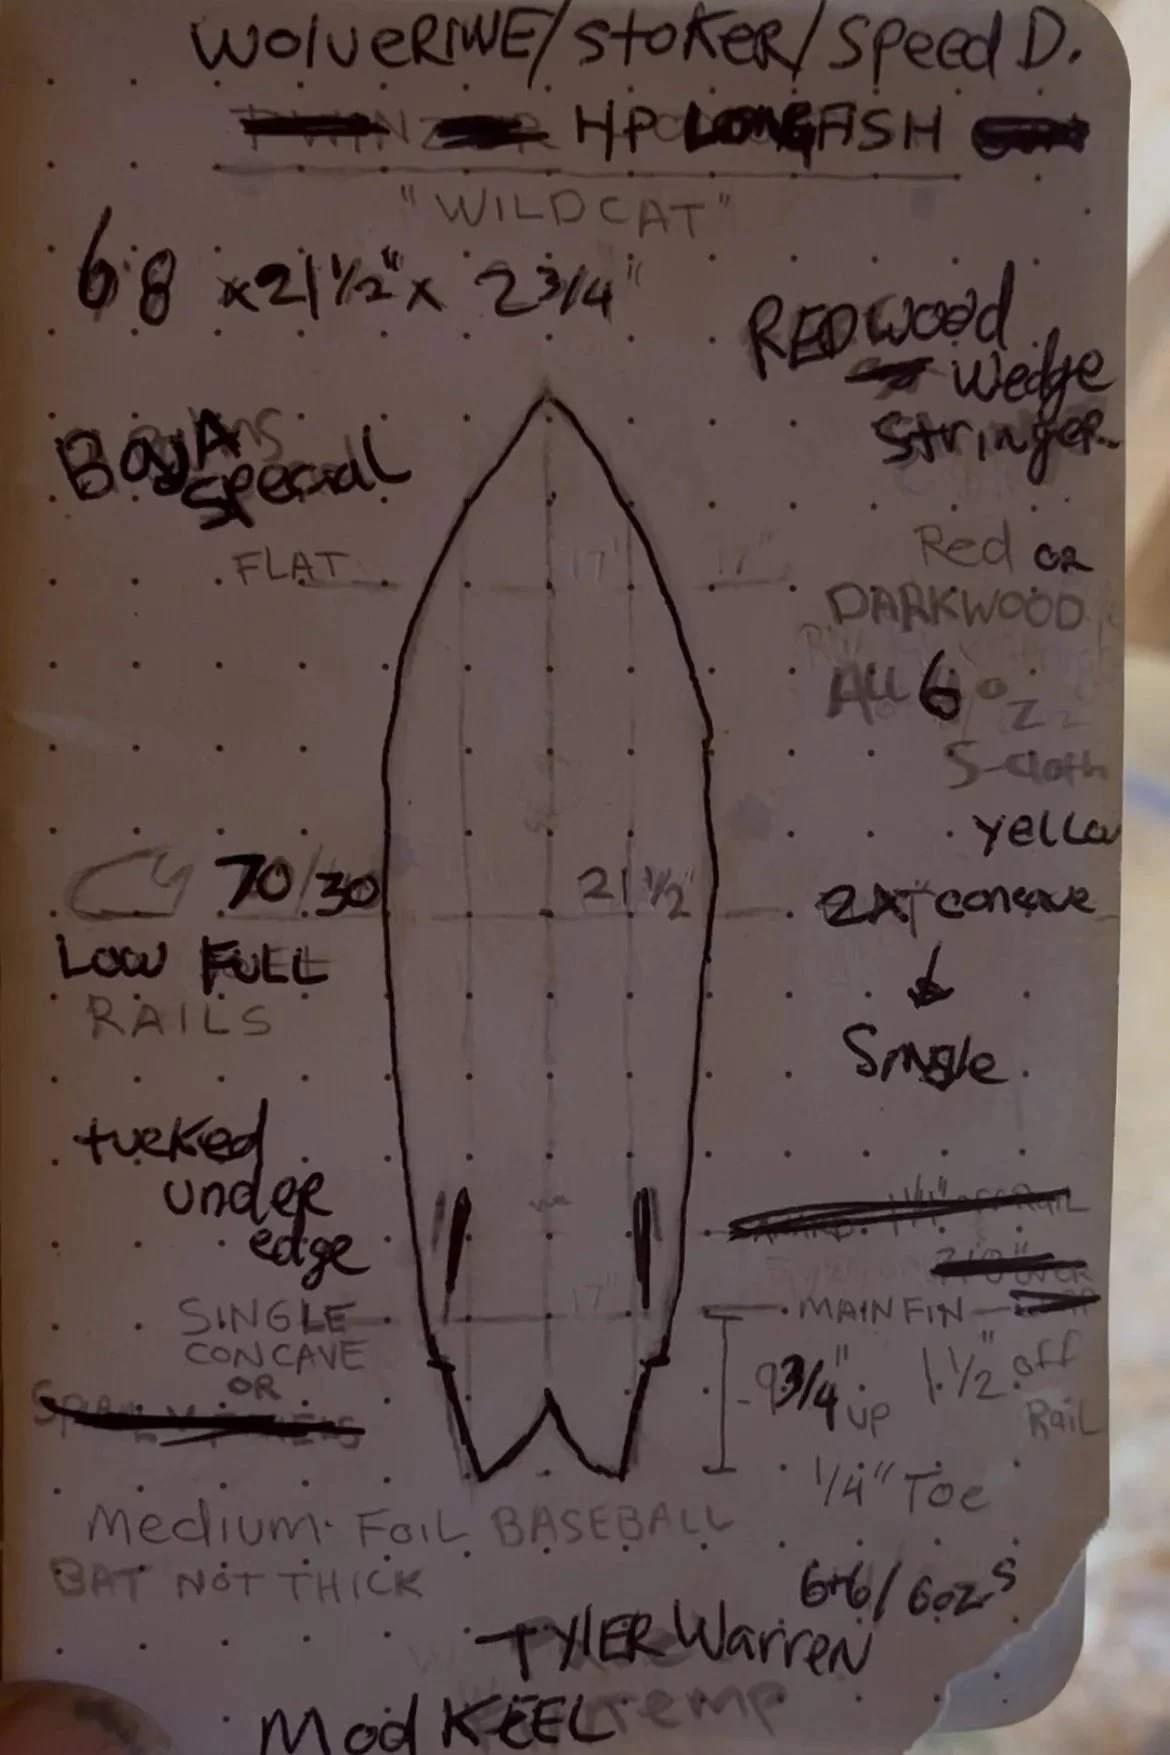 WOLVERINE/STOKER/SPEED D.
HP LONGFISH
"WILDCAT"
6'8 x 21 1/2" x 2 3/4"
REDWOOD
Wedge
Stringer
BAJA
Special
FLAT
17"
17"
Red OR
DARKWOOD
ALL 6 oz
S-cloth
yellow
70/30
21 1/2"
LOW FULL
RAILS
concave
↓
Single
tucked
under
edge
SINGLE
CONCAVE
OR
17"
MAIN FIN
9 3/4" up
1 1/2" off
Rail
1/4" Toe
Medium Foil BASEBALL
BAT NOT THICK
6+6/6oz S
TYLER Warren
Mod KEEL Temp